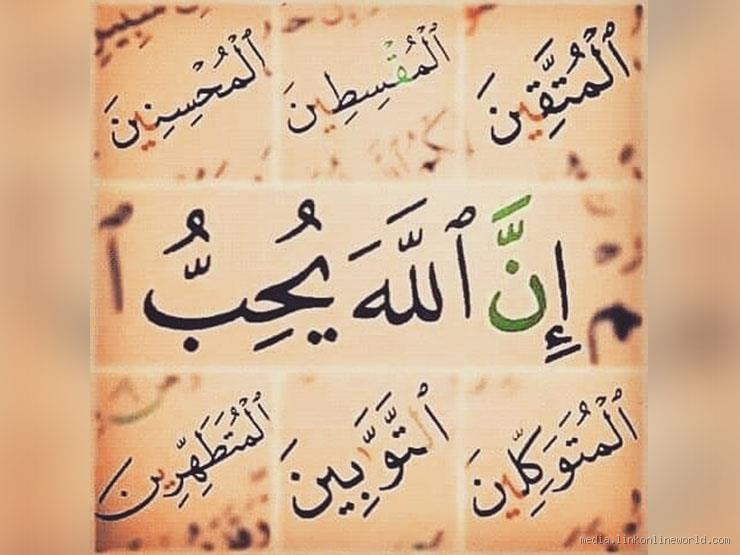 ٱلْمُتَّقِينَ ٱلْمُقْسِطِينَ ٱلْمُحْسِنِينَ
إِنَّ ٱللَّهَ يُحِبُّ
ٱلْمُتَوَكِّلِينَ ٱلتَّوَّٰبِينَ ٱلْمُتَطَهِّرِينَ
media.linkonlineworld.com